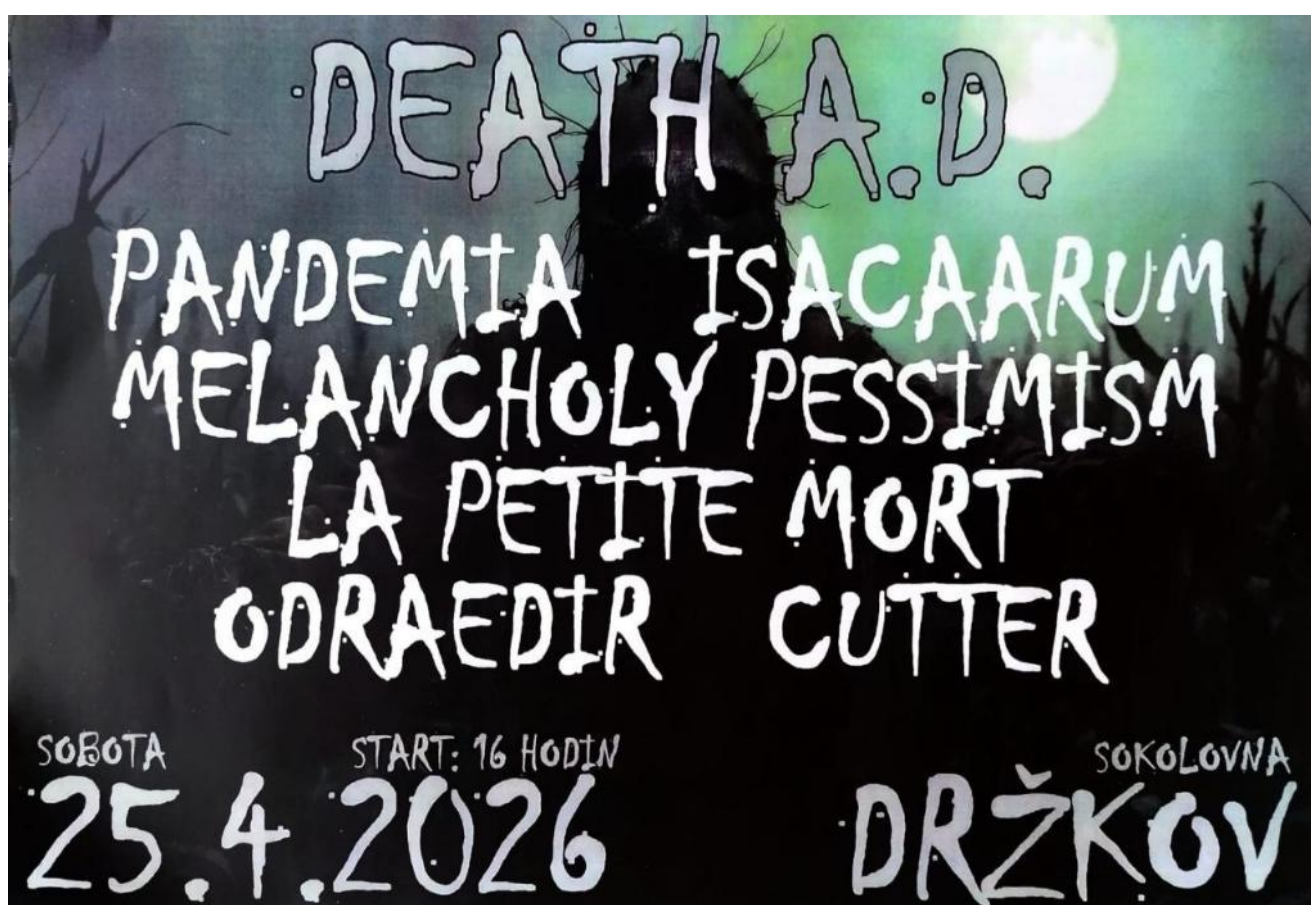 DEATH A.D.
PANDEMIA ISACAARUM
MELANCHOLY PESSIMISM
LA PETITE MORT
ODRAEDIR CUTTER
SOBOTA START: 16 HODIN SOKOLOVNA
25.4.2026 DRŽKOV